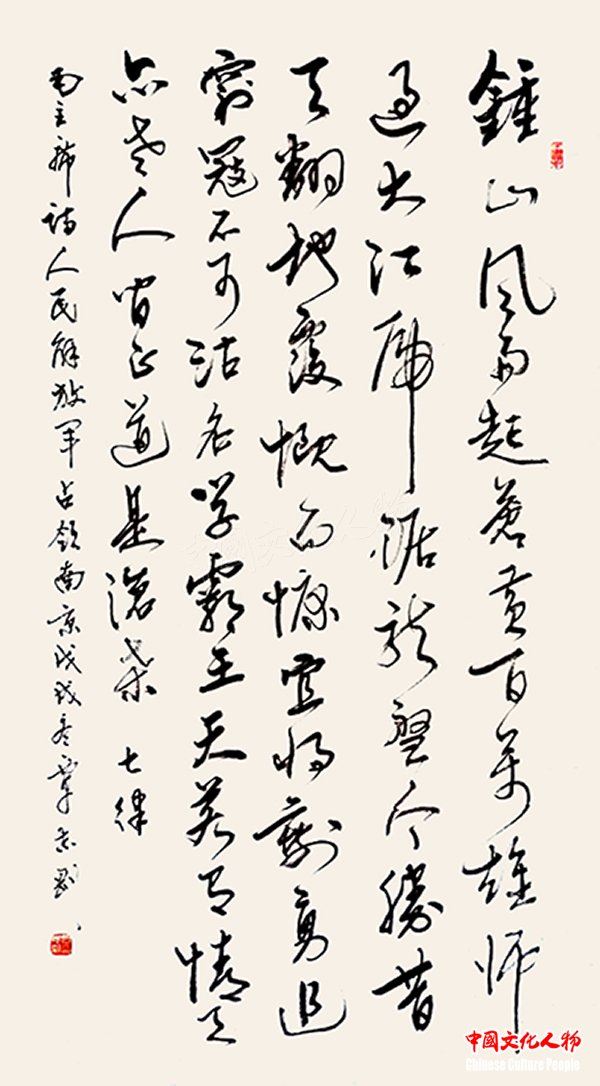 鍾山风雨起蒼黄百萬雄师
过大江虎踞龙盘今勝昔
天翻地覆慨而慷宜将剩勇追
窮寇不可沽名学霸王天若有情天
亦老人间正道是滄桑 七律
毛主席诗人民解放军占领南京戊戌冬覃志刚
中國文化人物
中國文化人物
Chinese Culture People